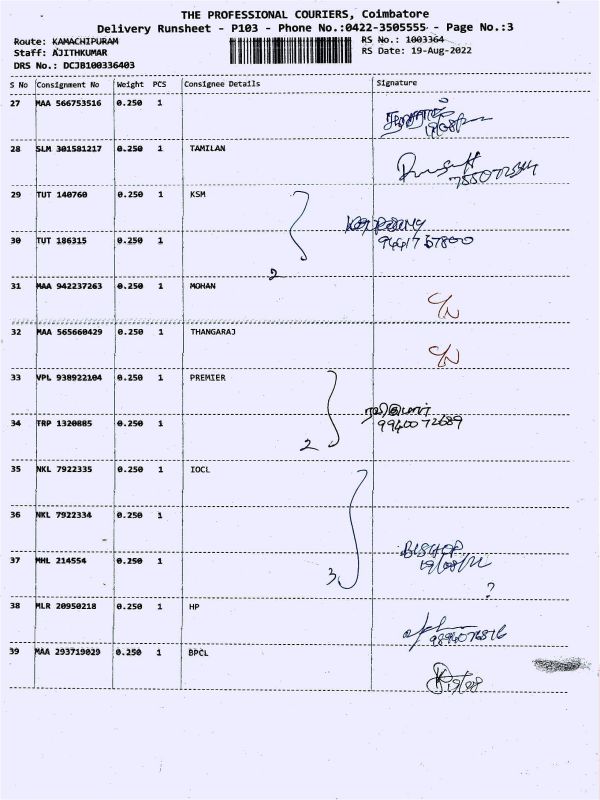 THE PROFESSIONAL COURIERS, Coimbatore
Delivery Runsheet - P103 - Phone No.:0422-3505555 - Page No.:3
Route: KAMACHIPURAM
RS No.: 1003364
Staff: AJITHKUMAR
RS Date: 19-Aug-2022
DRS No.: DCJB100336403
S No Consignment No Weight PCS Consignee Details Signature
27 MAA 566753516 0.250 1
19/08/
28 SLM 301581217 0.250 1 TAMILAN
29 TUT 140760 0.250 1 KSM
30 TUT 186315 0.250 1
2
31 MAA 942237263 0.250 1 MOHAN
C/N
32 MAA 565660429 0.250 1 THANGARAJ
C/N
33 VPL 938922104 0.250 1 PREMIER
34 TRP 1320885 0.250 1 9940072689
2
35 NKL 7922335 0.250 1 IOCL
36 NKL 7922334 0.250 1
37 MHL 214554 0.250 1 BISHOP
19/08/22
3
?
38 MLR 20950218 0.250 1 HP
9894076816
39 MAA 293719029 0.250 1 BPCL
19/08